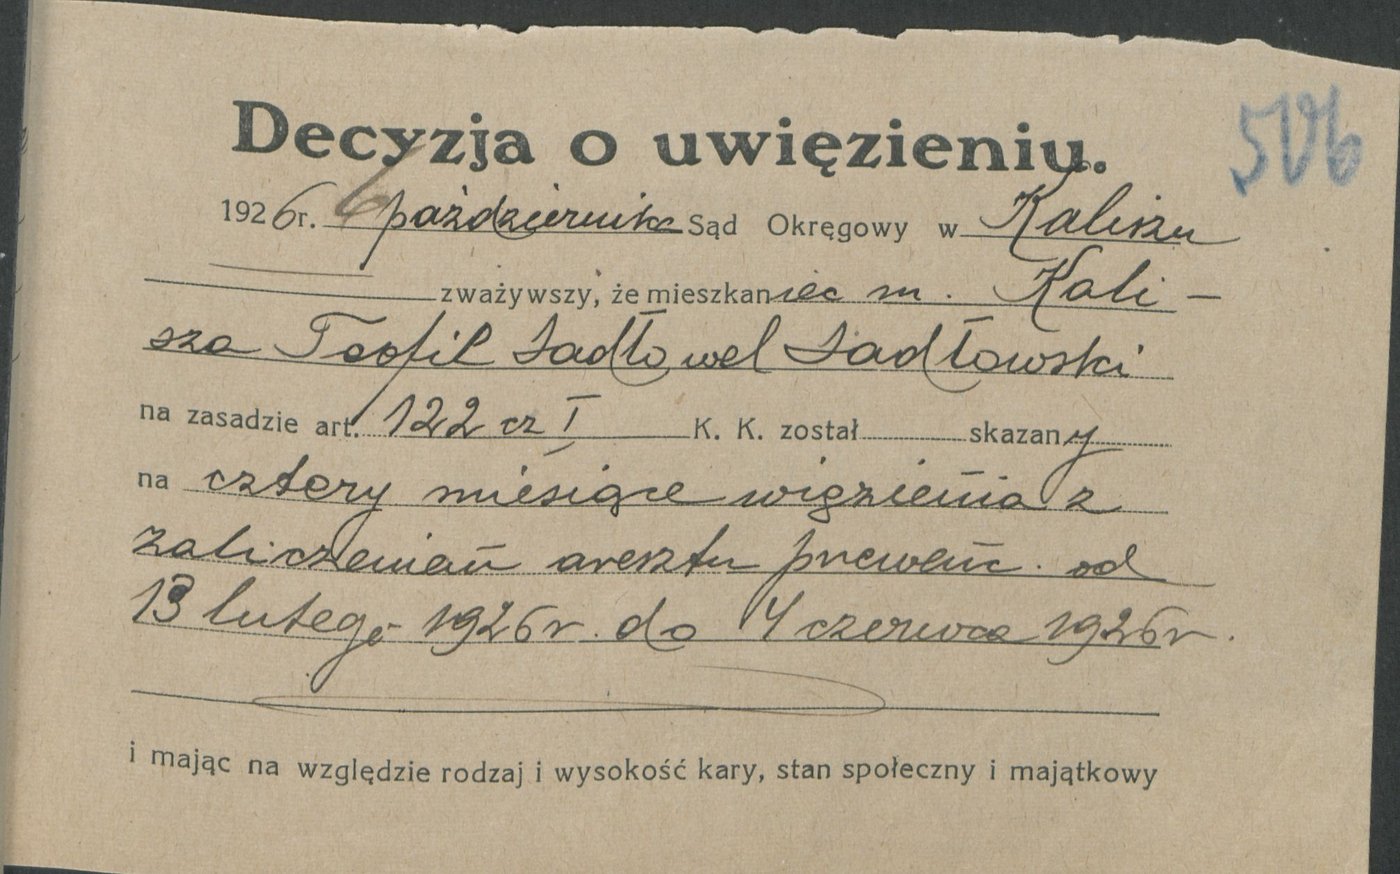 Decyzja o uwięzieniu.
506
1926r. 6 października Sąd Okręgowy w Kaliszu
zważywszy, że mieszkaniec m. Kali-
sza Teofil Sadło vel Sadłowski
na zasadzie art. 122 cz I K. K. został skazany
na cztery miesiące więzienia z
zaliczeniem aresztu prewenc. od
13 lutego 1926 r. do 4 czerwca 1926 r.
i mając na względzie rodzaj i wysokość kary, stan społeczny i majątkowy